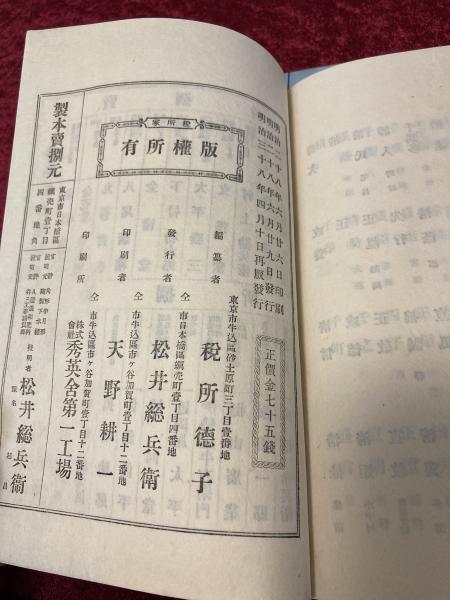 明治二十八年六月廿六日印刷
明治二十八年六月廿九日發行
明治三十八年四月十日再版發行
正價金七十五錢
稅所家
版權所有
東京市牛込區砂土原町三丁目壹番地
編纂者 稅所德子
仝市日本橋區蠣壳町壹丁目四番地
發行者 松井総兵衛
仝市牛込區市ヶ谷加賀町壹丁目十二番地
印刷者 天野耕一
仝市牛込區市ヶ谷加賀町壹丁目十二番地
印刷所 株式會社秀英舍第一工場
製本賣捌元
東京市日本橋區
蠣壳町壹丁目
四番地角
松井総兵衛